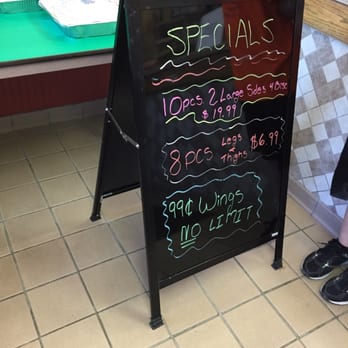 SPECIALS
10pcs 2 Large Sides 4 Bisc
$19.99
8pcs Legs & Thighs $6.99
99¢ Wings
NO LIMIT